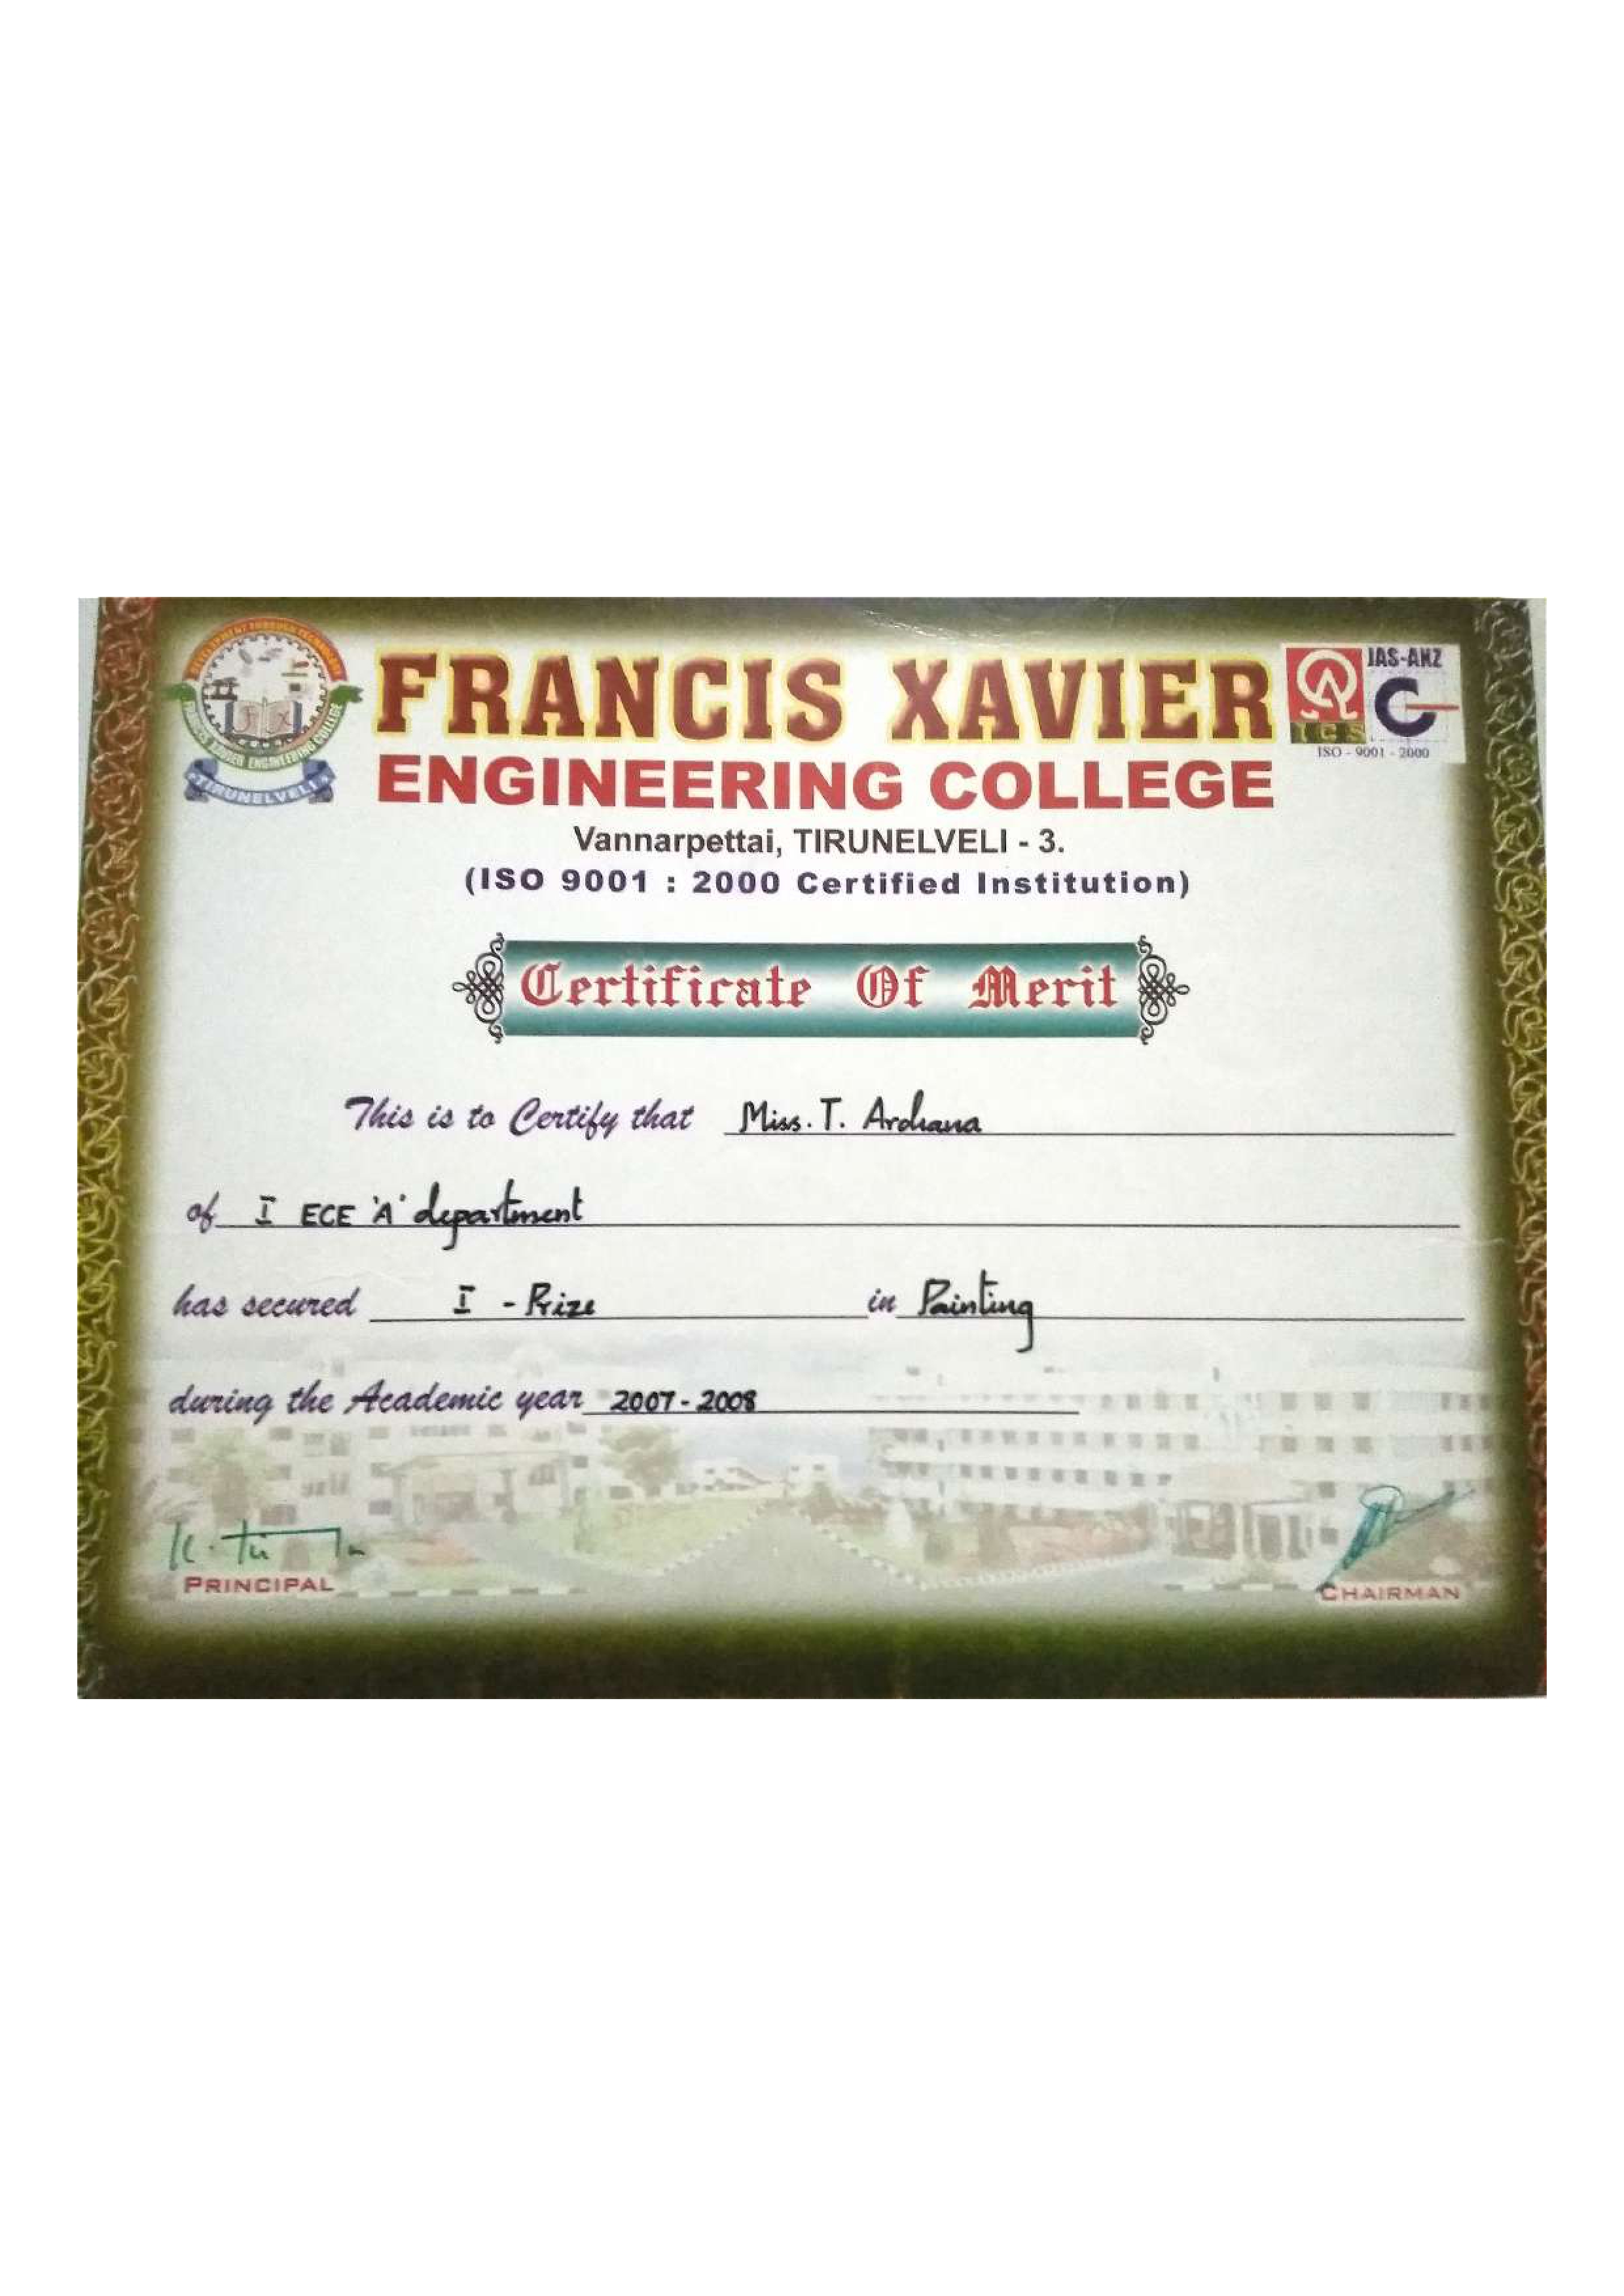 DEVELOPMENT THROUGH TECHNOLOGY
FRANCIS XAVIER ENGINEERING COLLEGE
TIRUNELVELI
FRANCIS XAVIER
ENGINEERING COLLEGE
JAS-ANZ
ICS
ISO - 9001 - 2000
Vannarpettai, TIRUNELVELI - 3.
(ISO 9001 : 2000 Certified Institution)
Certificate Of Merit
This is to Certify that Miss. T. Archana
of I ECE 'A' department
has secured I - Prize in Painting
during the Academic year 2007 - 2008
PRINCIPAL
CHAIRMAN